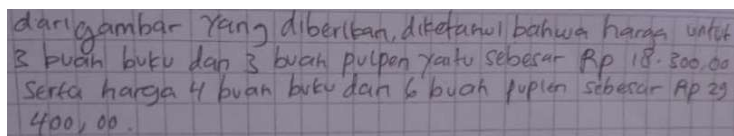 dari gambar yang diberikan, diketahui bahwa harga untuk
3 buah buku dan 3 buah pulpen yaitu sebesar Rp 18.300,00
Serta harga 4 buah buku dan 6 buah puplen sebesar Rp 29
400,00.